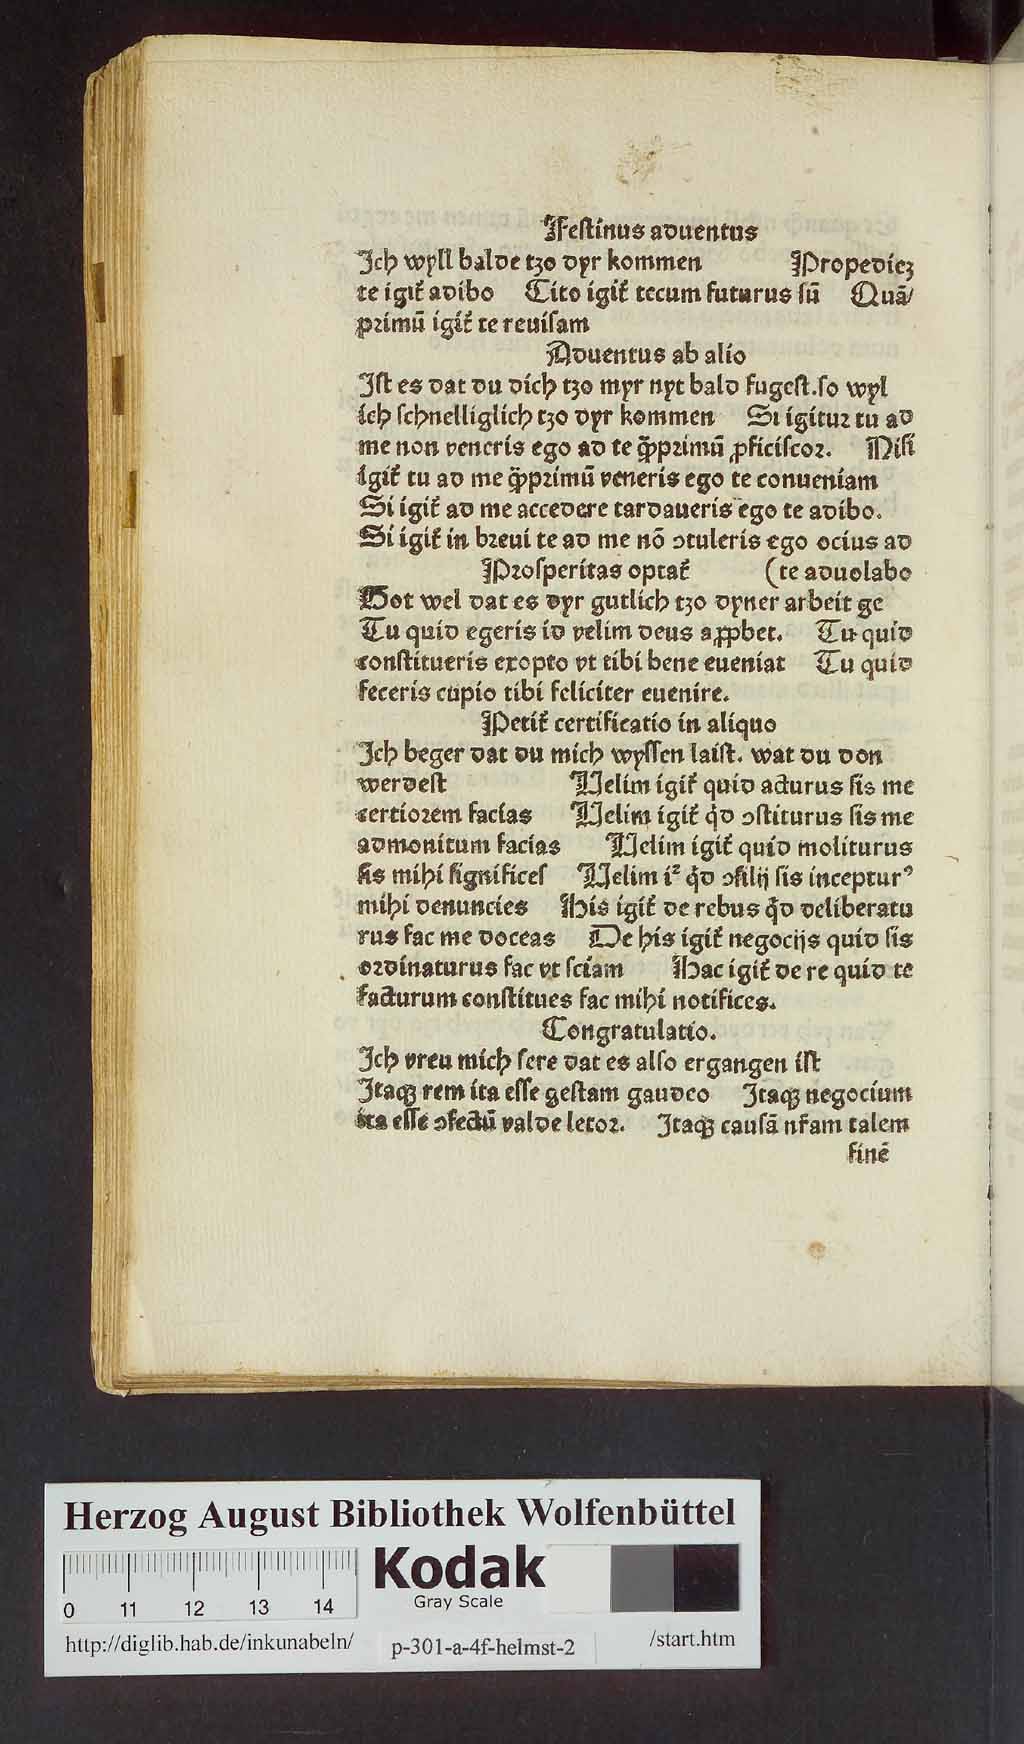 Festinus aduentus
Ich wyll balde tzo dyr kommen Propediez
te igit̃ adibo Cito igit̃ tecum futurus sū Quā/
primū igit̃ te reuisam
Aduentus ab alio
Ist es dat du dich tzo myr nyt bald fugest.so wyl
ich schnelliglich tzo dyr kommen Si igitur tu ad
me non veneris ego ad te q̄primū ꝓficiscor. Nisi
igit̃ tu ad me q̄primū veneris ego te conueniam
Si igit̃ ad me accedere tardaueris ego te adibo.
Si igit̃ in breui te ad me nō ↄtuleris ego ocius ad
Prosperitas optat̃ (te aduolabo
Got wel dat es dyr gutlich tzo dyner arbeit ge
Tu quid egeris id velim deus aꝓbet. Tu quid
constitueris exopto vt tibi bene eueniat Tu quid
feceris cupio tibi feliciter euenire.
Petit̃ certificatio in aliquo
Ich beger dat du mich wyssen laist. wat du don
werdest Uelim igit̃ quid acturus sis me
certiorem facias Uelim igit̃ qd̄ ↄstiturus sis me
admonitum facias Uelim igit̃ quid moliturus
sis mihi significes Uelim iᷣ qd̄ ↄsilij sis inceptur⁹
mihi denuncies His igit̃ de rebus qd̄ deliberatu
rus fac me doceas De his igit̃ negocijs quid sis
ordinaturus fac vt sciam Hac igit̃ de re quid te
facturum constitues fac mihi notifices.
Congratulatio.
Ich vreu mich sere dat es also ergangen ist
Itaqꝫ rem ita esse gestam gaudeo Itaqꝫ negocium
ita esse ↄfectū valde letor. Itaqꝫ causā nr̄am talem
finē
Herzog August Bibliothek Wolfenbüttel
Kodak
Gray Scale
0 11 12 13 14
http://diglib.hab.de/inkunabeln/ p-301-a-4f-helmst-2 /start.htm